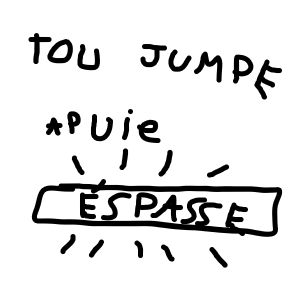 TOU JUMPE
APUie
ESPASSE